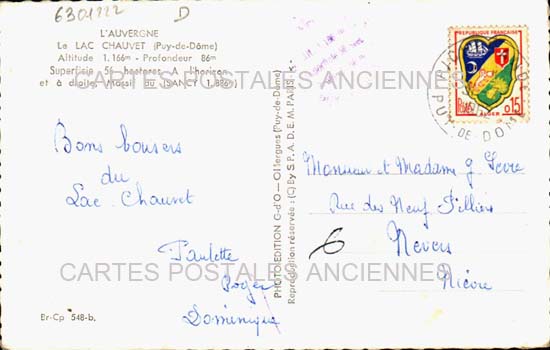 6301222 D
L'AUVERGNE
Le LAC CHAUVET (Puy-de-Dôme)
Altitude 1.166m - Profondeur 86m
Superficie 56 hectares A l'horizon
et à droite, Massif du SANCY 1.886m
Bons baisers
du
Lac Chauvet
Paulette
Roger
Dominique
Br-Cp 548-b.
PHOTO-EDITION G-d'O - Olliergues (Puy-de-Dôme)
Reproduction réservée : (C) By S.P.A.D.E.M. PARIS
REPUBLIQUE FRANÇAISE
0,15
ALGER
PUY-DE-DOME
Monsieur et Madame G
Rue des Neuf Pilliers
6 Nevers
Nièvre
CARTES POSTALES ANCIENNES
CARTES POSTALES ANCIENNES